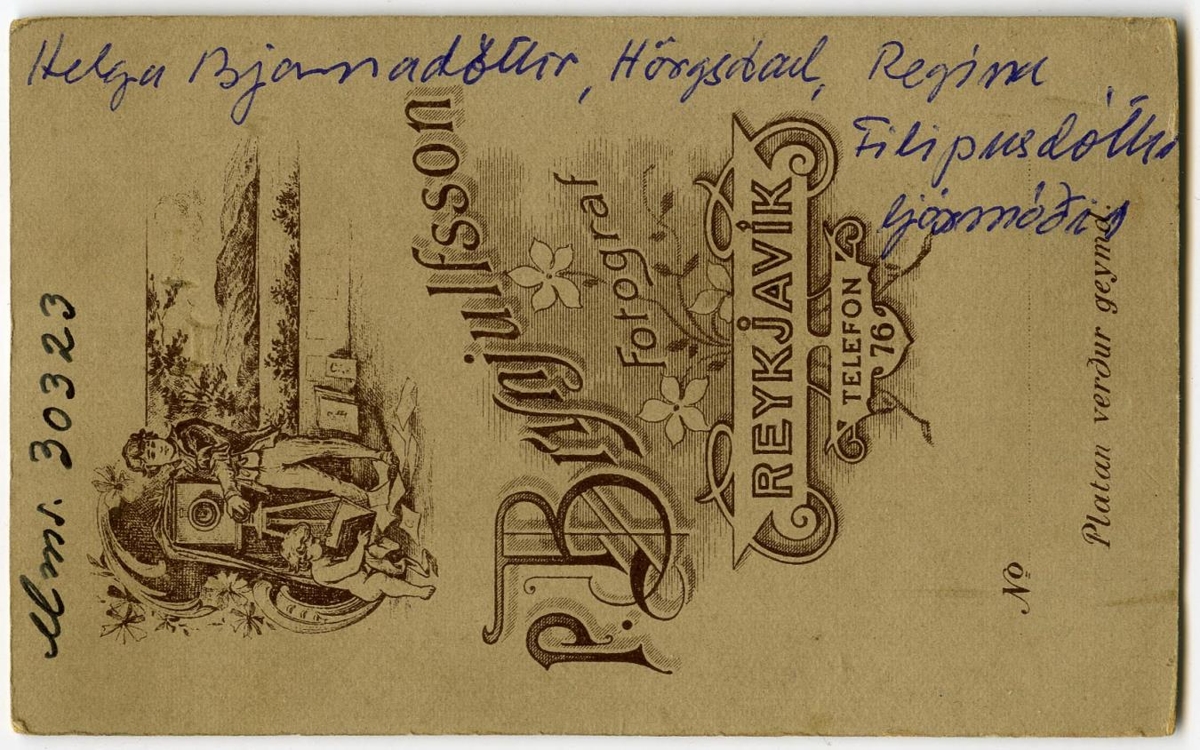 Helga Bjarnadóttir, Hörgsdal, Regína
Filipusdóttir
ljósmóðir
Mms. 30323
P. Brynjulfsson
Fotograf
REYKJAVÍK
TELEFON
76
No
Platan verður geymd.